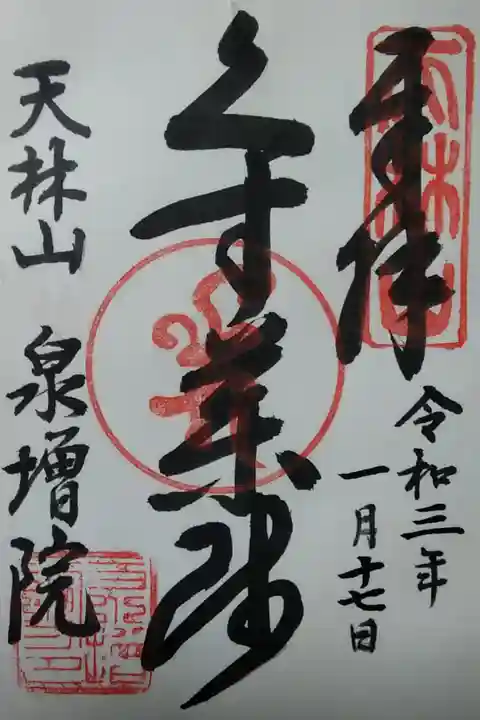 奉拝
令和三年
一月十七日
薬師
天林山 泉増院